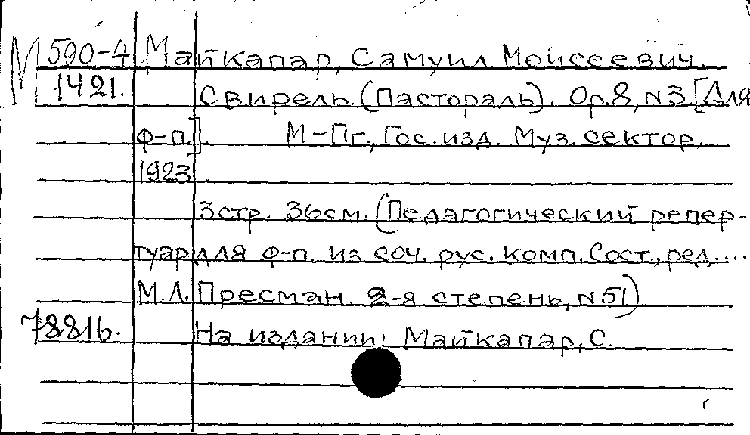 М 500-4 Майкапар, Самуил Моисеевич.
1421. Свирель (Пастораль). Op.8, N3 [Для
ф-п.]. М-Пг., Гос. изд. Муз. сектор,
1923
3стр. 36см. (Педагогический репер-
туар для ф-п. из соч. рус. комп. Сост., ред....
М.Л. Пресман. 2-я степень, N51)
7881б. На издании: Майкапар, С.